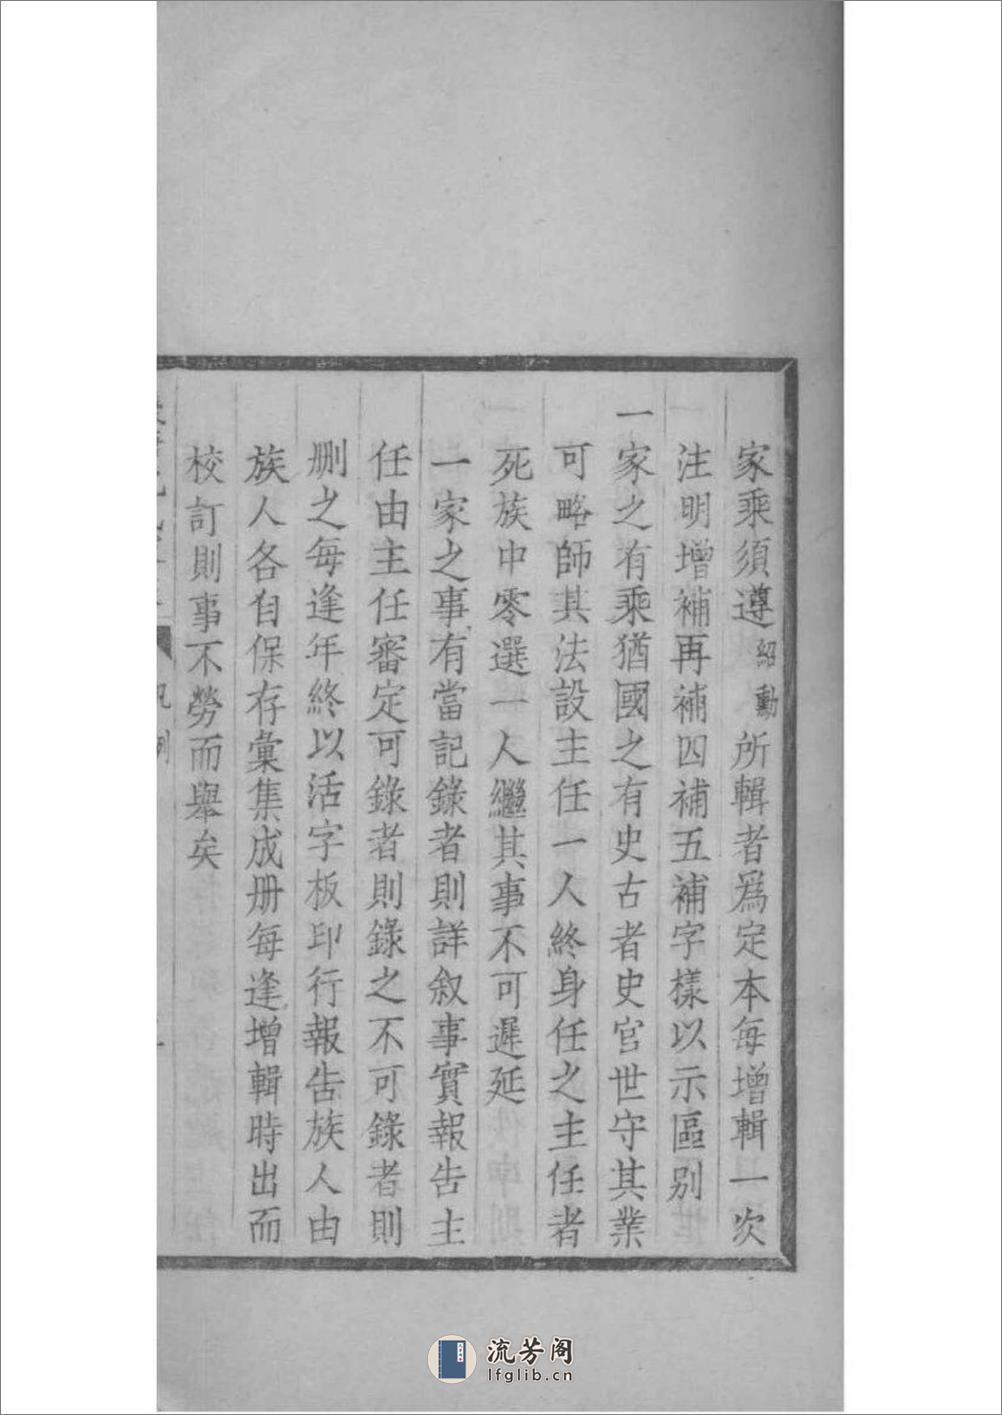 家乘須遵紹勳所輯者爲定本每增輯一次
注明增補再補四補五補字樣以示區别
一家之有乘猶國之有史古者史官世守其業
可略師其法設主任一人終身任之主任者
死族中零選一人繼其事不可遲延
一家之事有當記錄者則詳叙事實報告主
任由主任審定可錄者則錄之不可錄者則
删之每逢年終以活字板印行報告族人由
族人各自保存彙集成册每逢增輯時出而
校訂則事不勞而舉矣
凡例
流芳阁
lfglib.cn